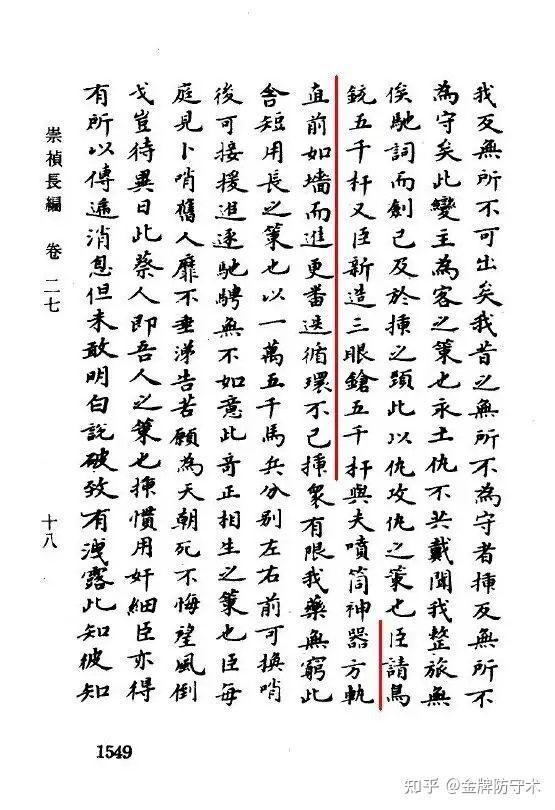 我反無所不可出矣我昔之無所不為守者揷反無所不
為守矣此變主為客之策也永土仇不共戴聞我整旅無
俟馳詞而劍已及於揷之頸此以仇攻仇之策也臣請鳥
銃五千杆又臣新造三眼鎗五千杆與夫噴筒神器方軌
直前如墻而進更畨迭循環不已揷衆有限我藥無窮此
舍短用長之策也以一萬五千馬兵分別左右前可換哨
後可接援進逐馳騁無不如意此奇正相生之策也臣每
庭見卜哨舊人靡不垂涕告苦願為天朝死不悔望風倒
戈豈待異日此蔡人即吾人之策也揷慣用奸細臣亦得
有所以傳遞消息但未敢明白說破致有洩露此知彼知
崇禎長編 卷二七
十八
1549
知乎 @金牌防守术